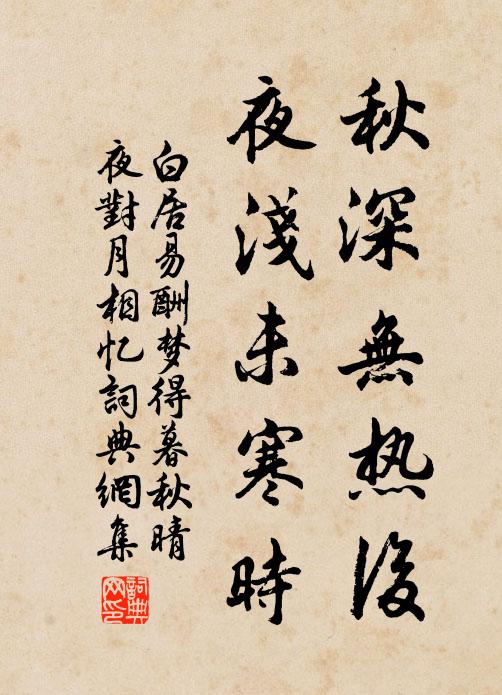 秋深無热後
夜淺未寒時
白居易酬梦得暮秋晴
夜對月相忆詞典網集